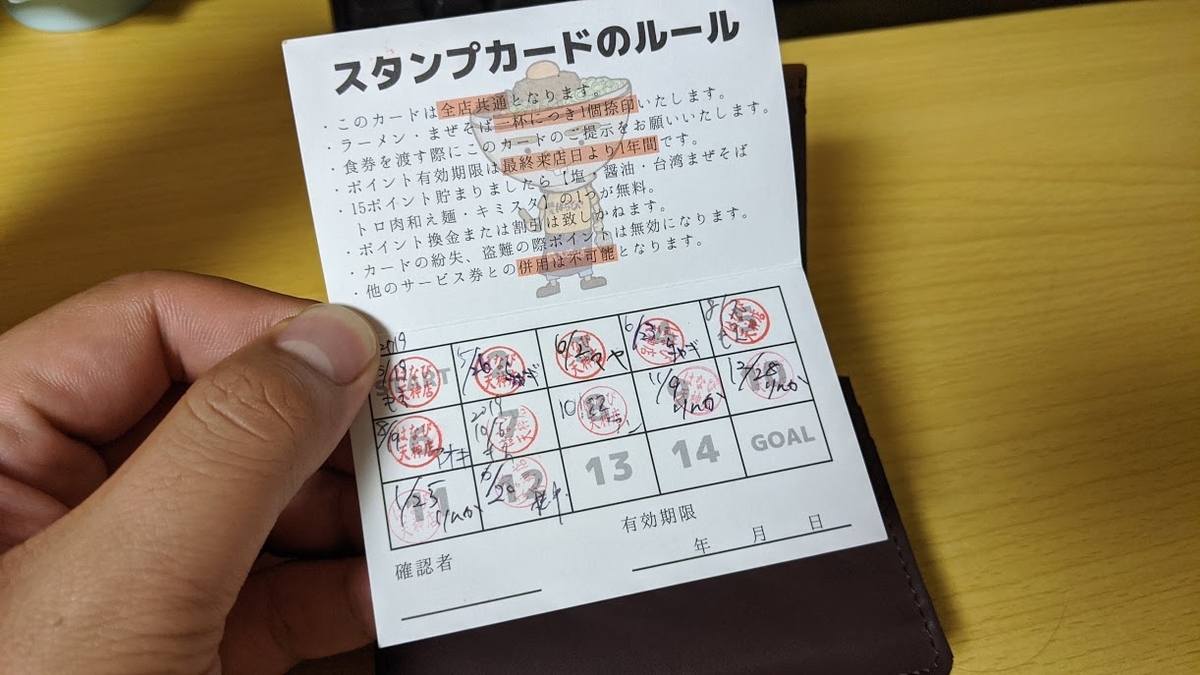 スタンプカードのルール
・このカードは全店共通となります。
・ラーメン・まぜそば一杯につき1個捺印いたします。
・食券を渡す際にこのカードのご提示をお願いいたします。
・ポイント有効期限は最終来店日より1年間です。
・15ポイント貯まりましたら【塩・醤油・台湾まぜそば
トロ肉和え麺・キミスタ】の1つが無料。
・ポイント換金または割引は致しかねます。
・カードの紛失、盗難の際ポイントは無効になります。
・他のサービス券との併用は不可能となります。
2019
5/19 はなび 天神店
5/26 はなび 天神店
6/2
6/23
8/
5
8/9 6 はなび 天神店 アオキ
2019 10/5 7
10/22 8 はなび 天神店
11/9 はなび りんか
12/28 りんか
1/25 11 りんか
6/20 12
13
14
GOAL
有効期限
年 月 日
確認者